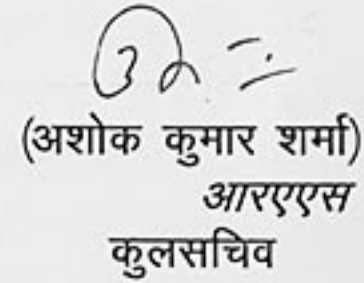 (अशोक कुमार शर्मा)
आरएएस
कुलसचिव